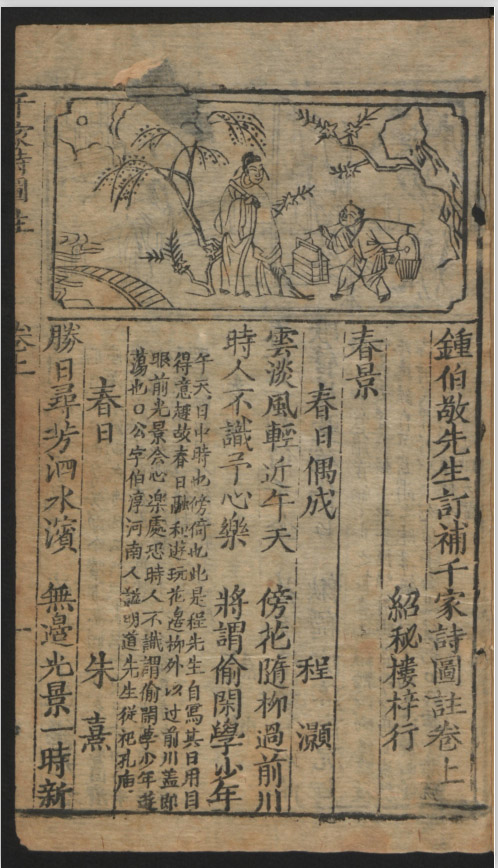 鍾伯敬先生訂補千家詩圖註卷上
紹秘樓梓行
春景
春日偶成 程灝
雲淡風輕近午天 傍花隨柳過前川
時人不識予心樂 將謂偷閑學少年
午天日中時也傍倚也此是程先生自寫其日用目
得意趣故春日融和遊玩花邊柳外以过前川蓋即
眼前光景会心楽處恐時人不識謂偷閑學少年遊
蕩也〇公字伯淳河南人諡明道先生從祀孔庙
春日 朱熹
勝日尋芳泗水濱 無邊光景一時新
千家詩圖註
卷上
一